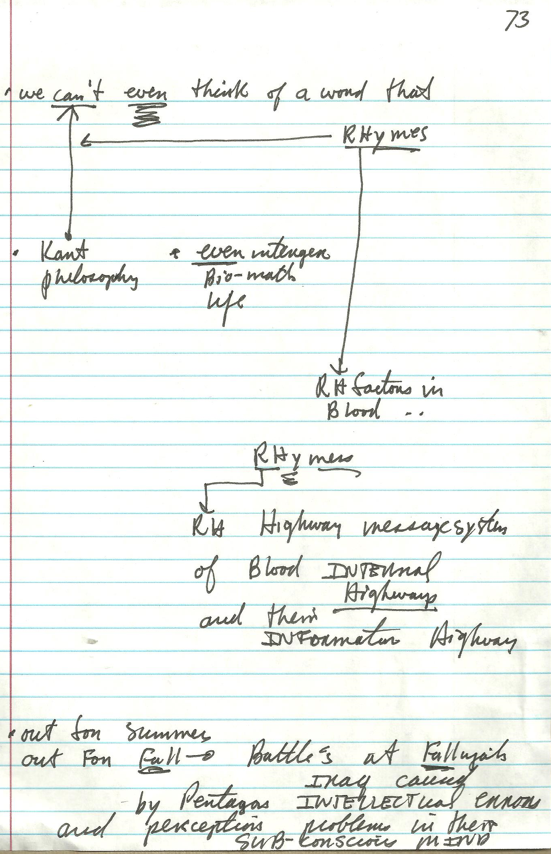 73
• we can't even think of a word that
RHymes
• Kant
philosophy
• even integer
Bio-math
life
RH factors in
Blood ..
RHymess
RH Highway message system
of Blood INTERNAL
Highways
and their
INFormation Highway
• out for summer
out For Fall → Battle's at Fallujah
Iraq caused
by Pentagon INTELLECTUAL errors
and perception problems in their
SUB-CONSCIOUS MIND